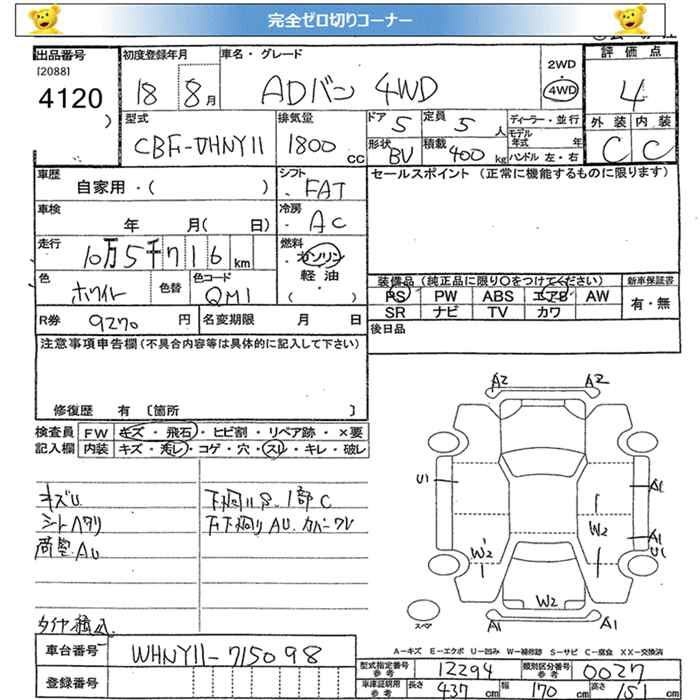 完全ゼロ切りコーナー
出品番号
[2088]
4120
初度登録年月
18 8月
車名・グレード
ADバン 4WD
2WD
・
4WD
評価点
4
外装 内装
C C
型式
CBF-VHNY11
排気量
1800 CC
ドア 5
定員 5 人
形状 BV
積載 400 kg
ディーラー・並行
モデル年式 年
ハンドル 左・右
車歴
自家用・( )
シフト
・FAT
車検
年 月( 日)
冷房
・AC
走行
10万5千716 km
燃料
ガソリン
軽油
・( )
色
ホワイト
色替
色コード
QM1
R券 9270 円
名変期限 月 日
セールスポイント (正常に機能するものに限ります)
装備品 (純正品に限り○をつけてください)
新車保証書
PS PW ABS エアB AW
SR ナビ TV カワ
有・無
後日品
注意事項申告欄(不具合内容等は具体的に記入して下さい)
修復歴 有 〔箇所 〕
検査員 FW キズ・飛石・ヒビ割・リペア跡・×要
記入欄 内装 キズ・汚レ・コゲ・穴・スレ・キレ・破レ
キズU
シートヘタリ
荷室AU
下廻りS.1部C
タイヤ積込
A2 A2
U1
A1
W2
A1
U1
W2
W2
A1 A1
スペア
A-キズ E-エクボ U-凹み W-補修跡 S-サビ C-腐食 XX-交換済
車台番号
WHNY11-715098
登録番号
型式指定番号
参考
12294
類別区分番号
参考
0027
車庫証明用
参考
長さ 437 cm
幅 170 cm
高さ 151 cm